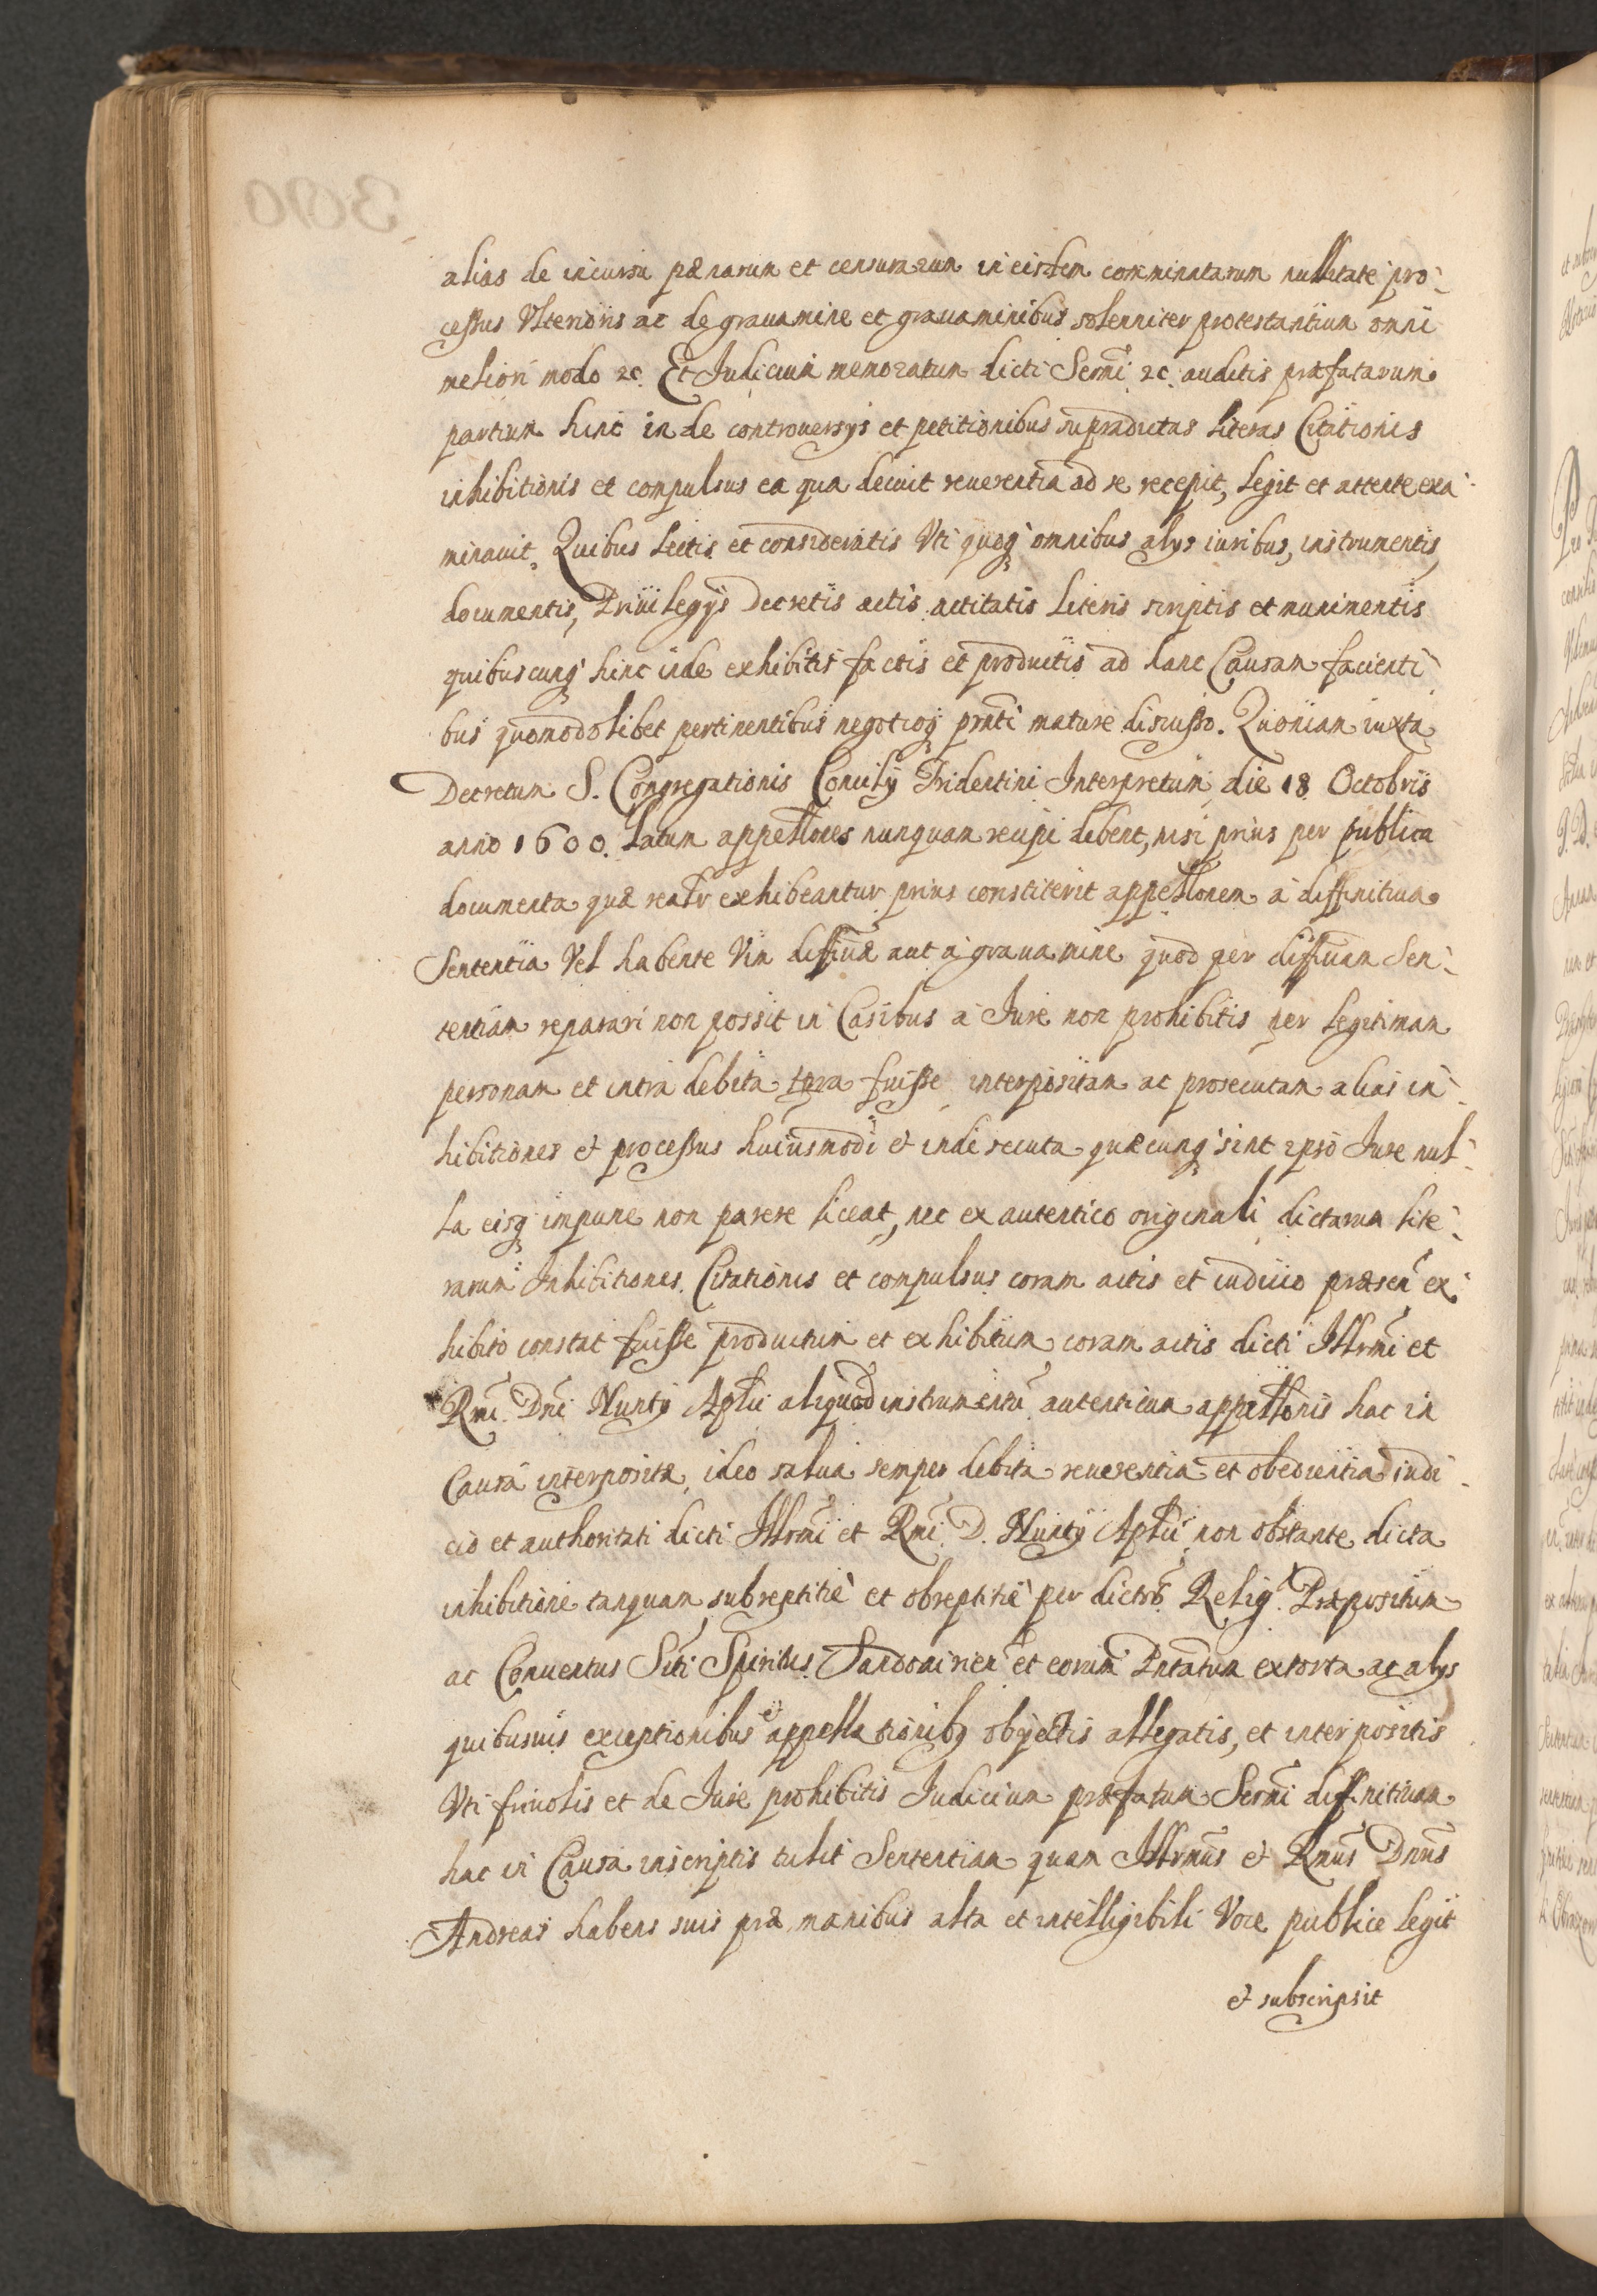 alias de incursu pænarum et censurarum in eisdem comminatarum nullitate pro-
cessus Ulterioris ac de grauamine et grauaminibus solenniter protestantium omni
meliori modo &c. Et Judicium memoratum dicti Sermi &c. auditis præfatarum
partium hinc inde controuersys et petitionibus supradictas Literas Citationis
inhibitionis et compulsus ea qua decuit reuerentia ad se recepit, Legit et attente exa-
minauit. Quibus Lectis et consideratis Uti quoq omnibus alys iuribus, instrumentis,
documentis, Priuilegys Decretis actis actitatis Literis scriptis et munimentis
quibuscunq hinc inde exhibitis factis et productis ad hanc Causam facienti-
bus quomodolibet pertinentibus negotioq prnti mature discusso. Quoniam iuxta
Decretum S. Congregationis Concily Tridentini Interpretum die 18 Octobris
anno 1600. Latum appellones nunquam recipi debent, nisi prius per publica
documenta quæ realr exhibeantur prius constiterit appellonem a diffinitiua
Sententia Vel habente Vim diffiuæ aut a grauamine quod per diffiuam Sen-
tentiam reparari non possit in Casibus a Jure non prohibitis per Legitimam
personam et intra debita tpra fuisse interpositam ac prosecutam alias in-
hibitiones et processus huiusmodi et inde secuta quæcunq sint ipso Jure nul-
la eisq impune non parere liceat, nec ex autentico originali dictarum lite-
rarum Inhibitiones. Citationis et compulsus coram actis et iudicio præsen ex-
hibito constat fuisse productum et exhibitum coram actis dicti Illrmi et
Rmi Dni Nunty Aplici aliquod instrumentu autenticum appellonis hac in
Causa interpositæ, ideo salua semper debita reuerentia et obedientia iudi-
cio et authoritati dicti Illrmi et Rmi D. Nunty Aplici non obstante dicta
inhibitione tanquam subreptitie et obreptitie per dictos Relig. Præpositum
ac Conuentus Scti Spiritus Sandomirien et eorum Prtatum extorta ac alys
quibusuis exceptionibus et appellationibq objectis allegatis, et interpositis
Uti friuolis et de Jure prohibitis Judicium præfatum Sermi diffinitiuam
hac in Causa inscriptis tulit Sententiam quam Illrmus et Rmus Dnus
Andreas habens suis præ manibus alta et intelligibili Voce publice Legit
et subscripsit